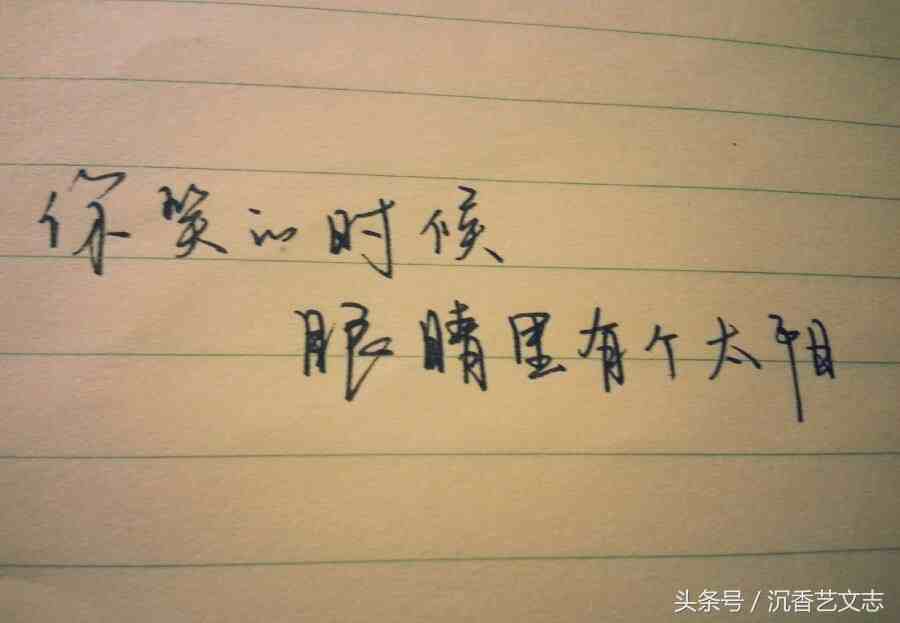 你笑的时候
眼睛里有个太阳
头条号/沉香艺文志